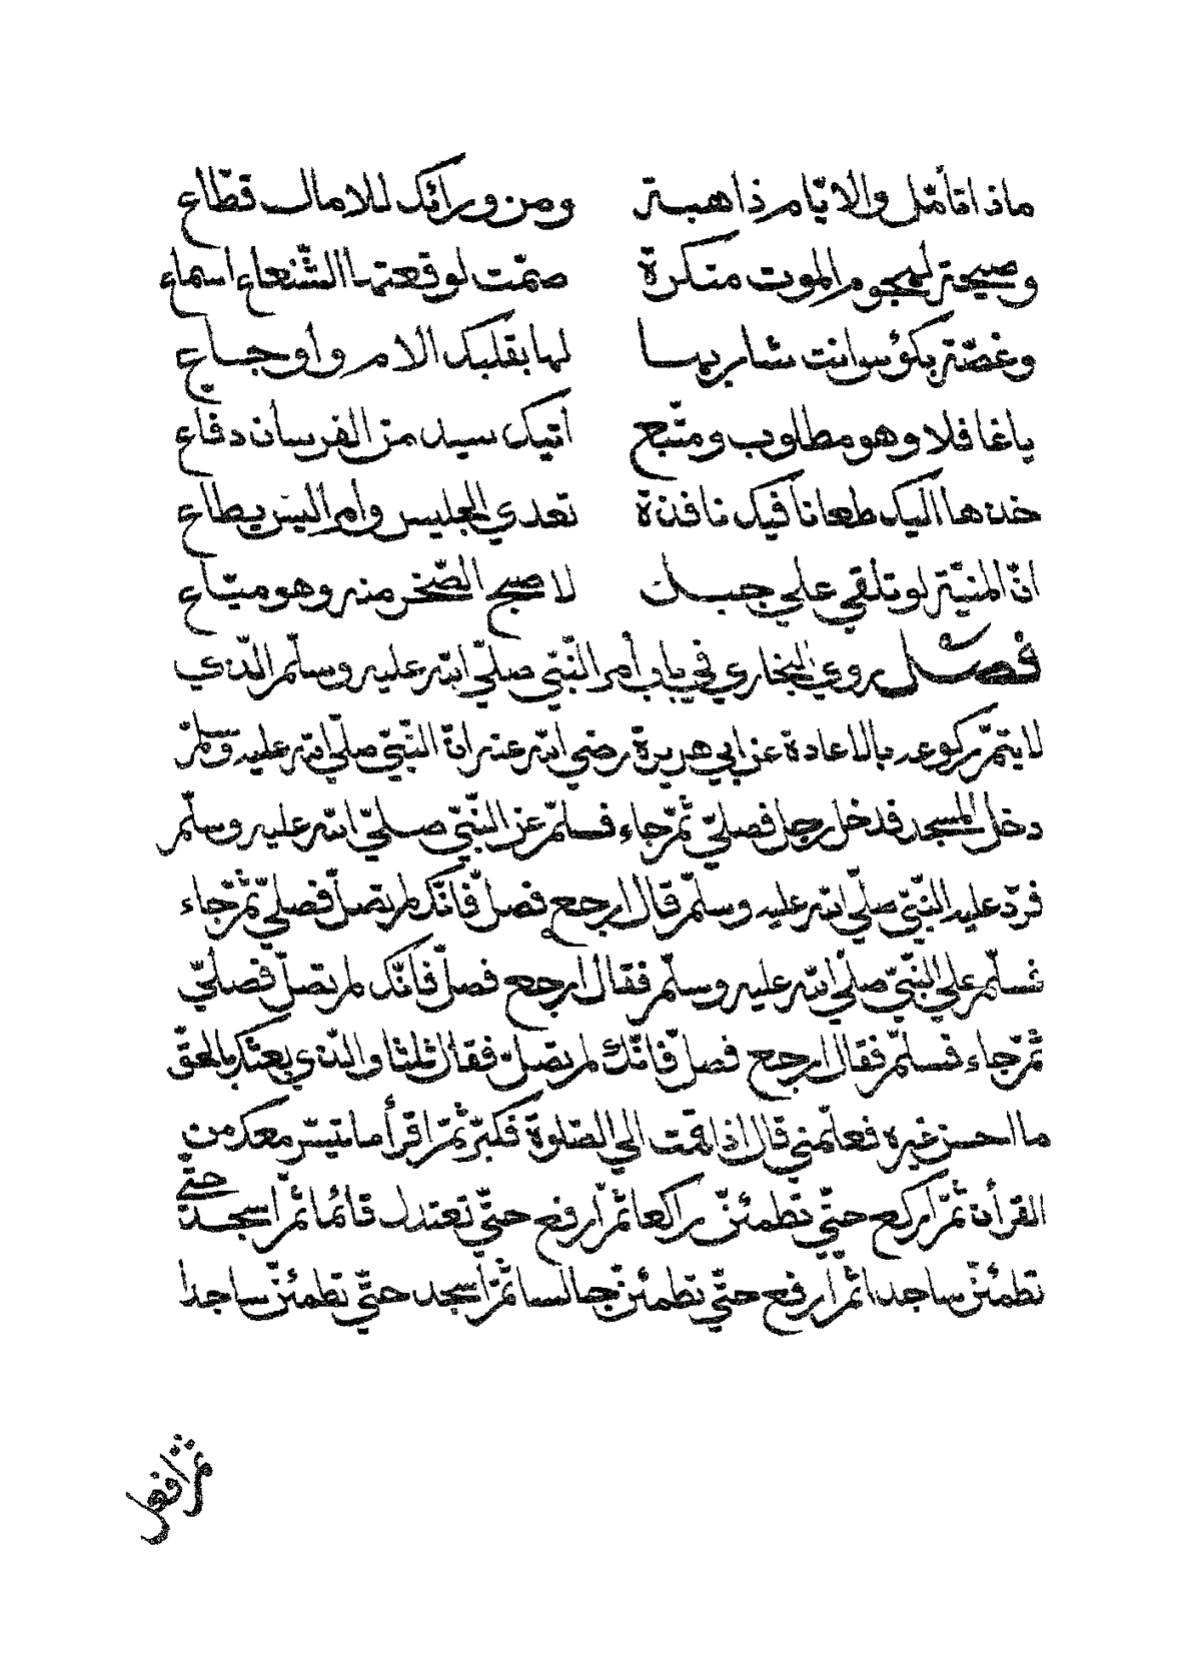 ماذا تأمّل والايّام ذاهبة ومن ورائك للامال قطّاع
وصيحة لهجوم الموت منكرة صمّت لوقعتها الشّنعاء اسماع
وغصّة بكؤس انت شاربها لها بقلبك الام واوجاع
ياغافلا وهو مطلوب ومتّبع أتيك سيد من الفرسان دفاع
خذها اليك طعانا فيك نافذة تعدي الجليس وأمر ليس يطاع
انّ المنيّة لو تلقي علي جبل لاصبح الصّخر منه وهو ميّاع
فصل روي البخاري في باب أمر النّبيّ صلّي الله عليه وسلّم الّذي
لا يتمّ ركوعه بالاعادة عن ابي هريرة رضي الله عنه انّ النّبيّ صلّي الله عليه وسلّم
دخل المسجد فدخل رجل فصليّ ثمّ جاء فسلمّ عن النّبيّ صليّ الله عليه وسلّم
فردّ عليه النّبيّ صلّي الله عليه وسلّم قال ارجع فصلّ فانّك لم تصلّ فصليّ ثمّ جاء
فسلّم علي النّبيّ صلّي الله عليه وسلّم فقال ارجع فصلّ فانّك لم تصلّ فصليّ
ثمّ جاء فسلمّ فقال ارجع فصلّ فانّك لم تصلّ فقال ثلثا والّذي بعثك بالحقّ
ما احسن غيره فعلّمني قال اذا قمت الي الصّلوة فكبّر ثمّ اقرأ ما تيسّر معك من
القرأن ثمّ اركع حتّي تطمئنّ راكعا ثمّ ارفع حتّي تعتدل قائما ثمّ اسجد حتّي
تطمئنّ ساجدا ثمّ ارفع حتّي تطمئنّ جالسا ثمّ اسجد حتّي تطمئنّ ساجدا
ثمّ افعل